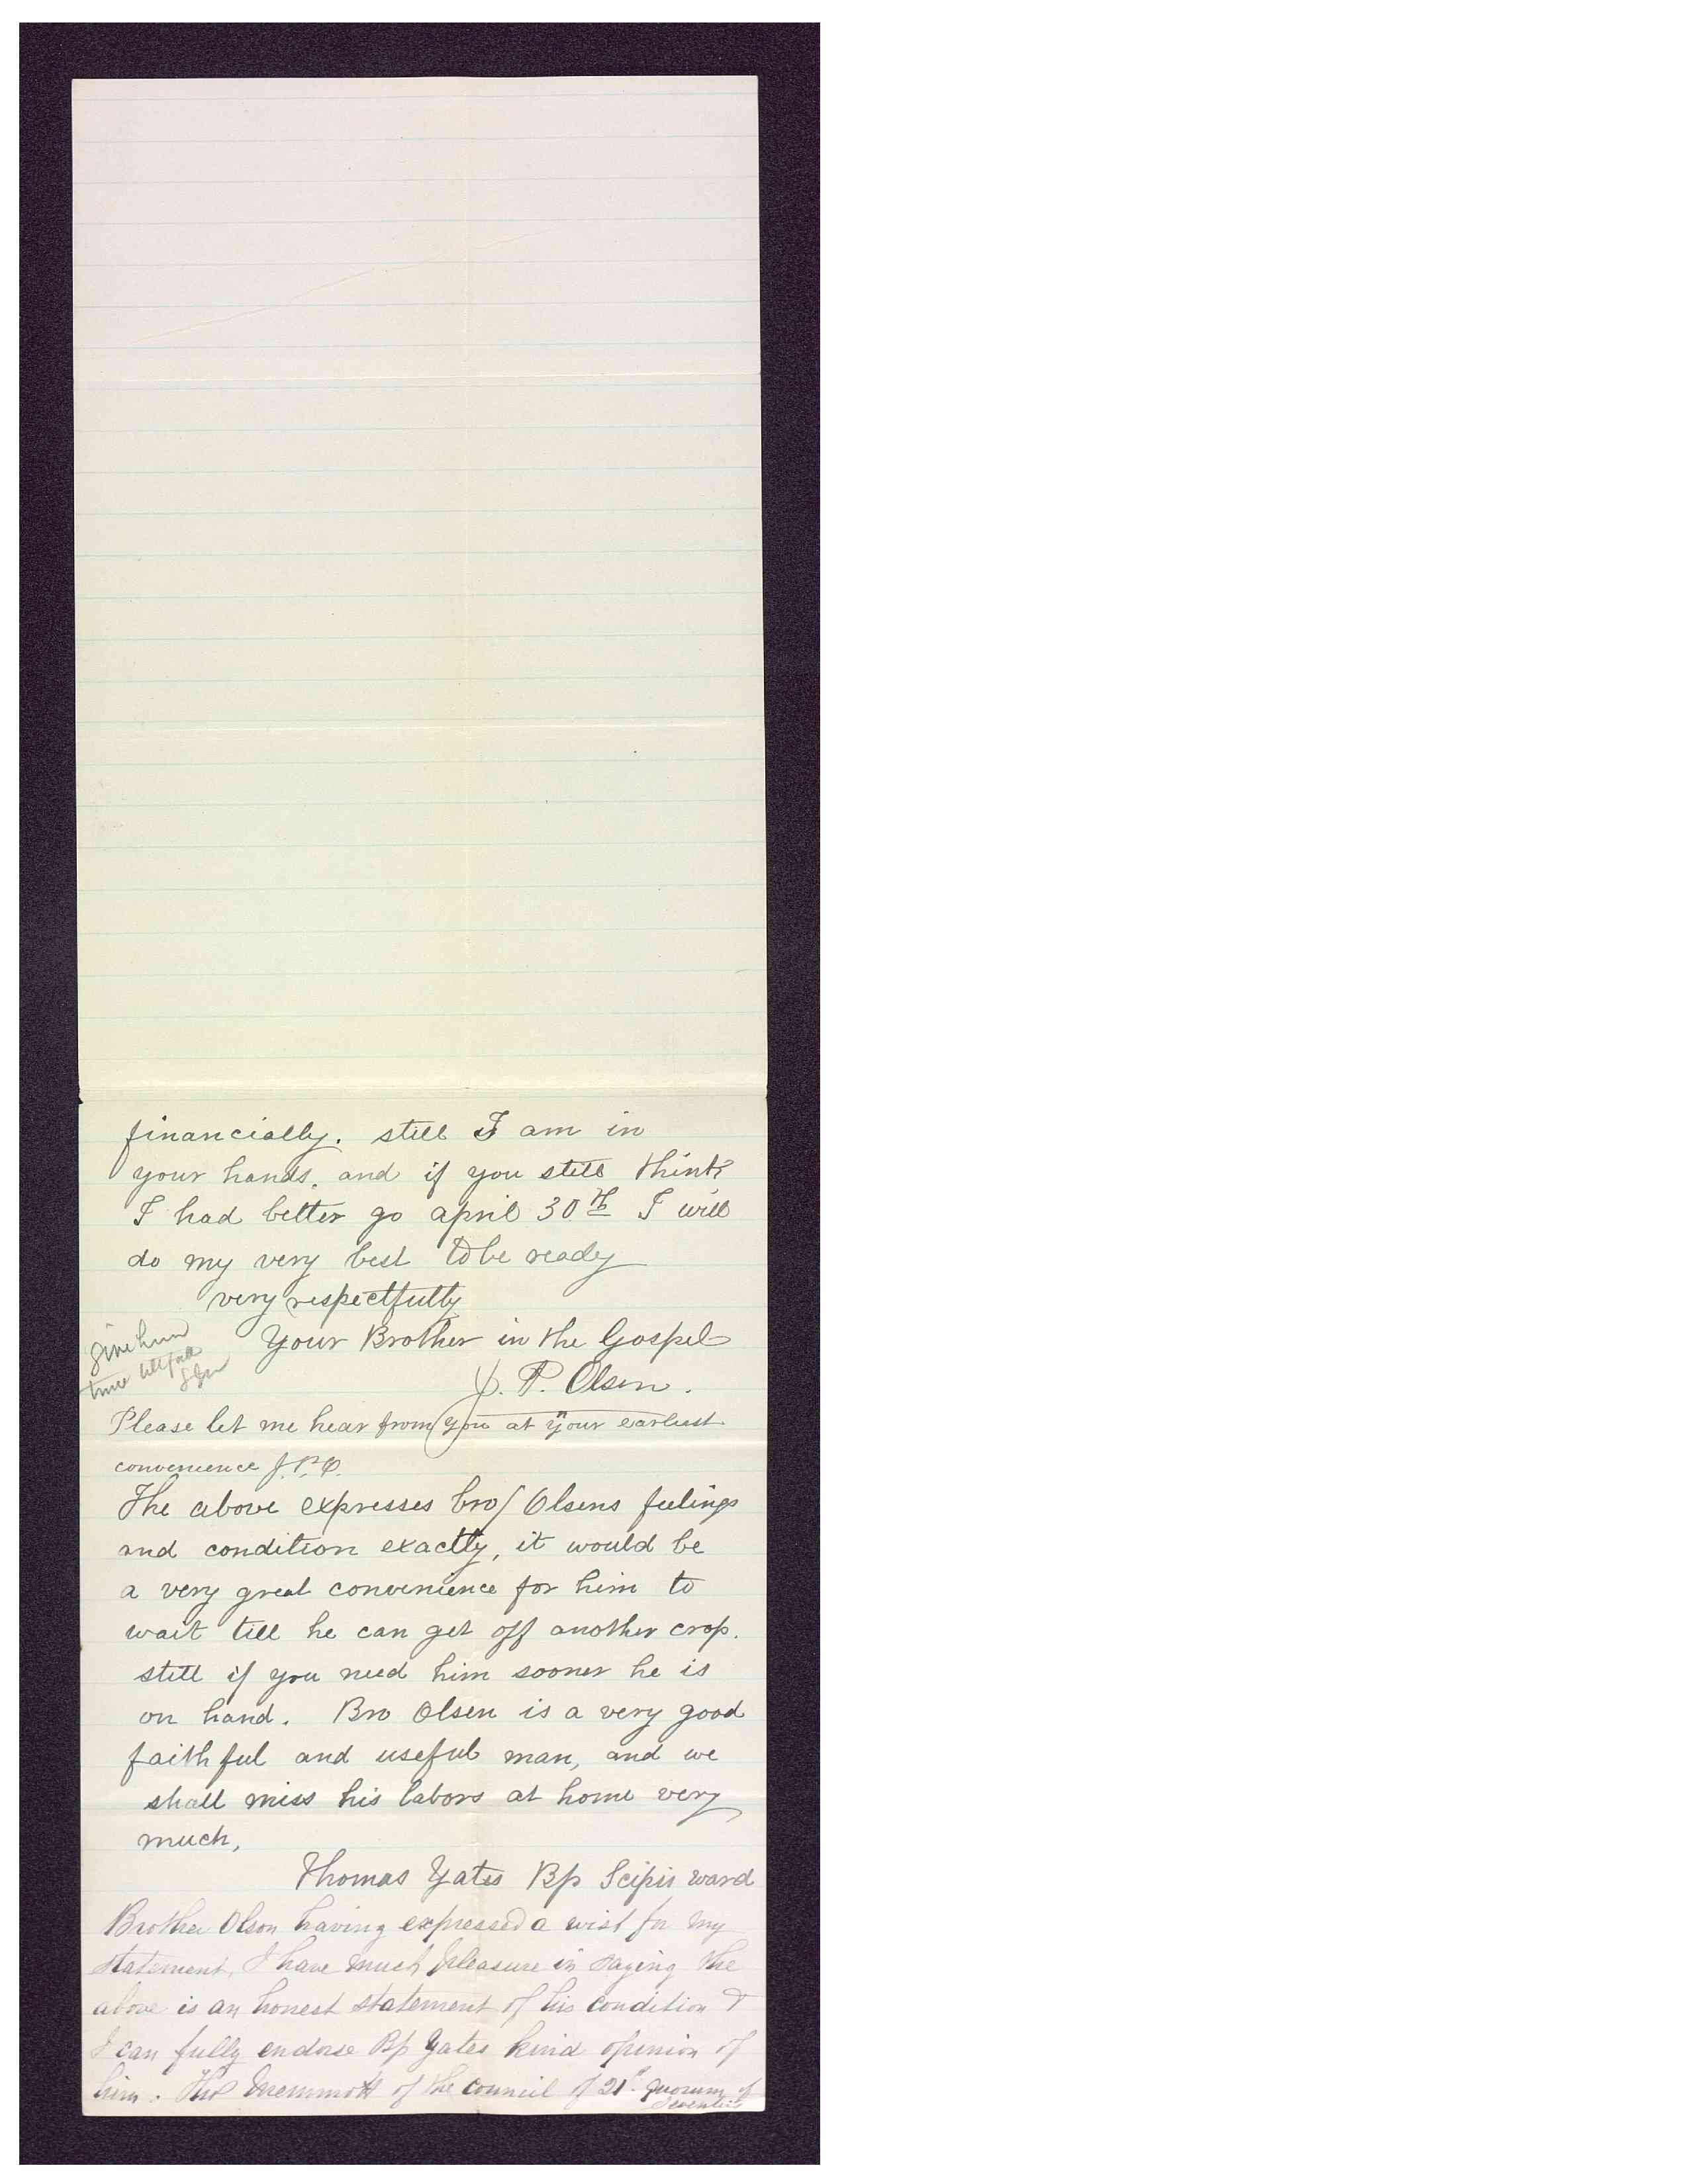 financially. still I am in
your hands. and if you still think
I had better go april 30th I will
do my very best to be ready
very respectfully
Your Brother in the Gospel
J. P. Olsen.
Give him
time
Please let me hear from you at your earliest
convenience J.P.O.
The above expresses bro/ Olsens feelings
and condition exactly, it would be
a very great convenience for him to
wait till he can get off another crop.
still if you need him sooner he is
on hand. Bro Olsen is a very good
faithful and useful man, and we
shall miss his labors at home very
much,
Thomas Yates Bp Scipio ward
Brother Olson having expressed a wish for my
statement, I have much pleasure in saying the
above is an honest statement of his condition &
I can fully endorse Bp Yates kind opinion of
him. Thos Memmott of the council of 21st. Quorum of
Seventies